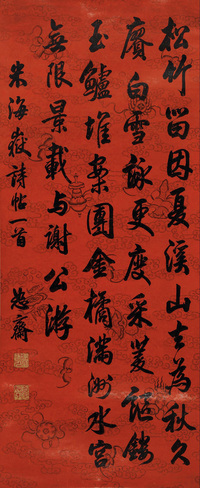 松竹留因夏溪山去為秋久
賡白雪詠更度采菱謳鏤
玉鱸堆案團金橘滿洲水宮
無限景載与謝公游
米海嶽詩帖一首 恕齋